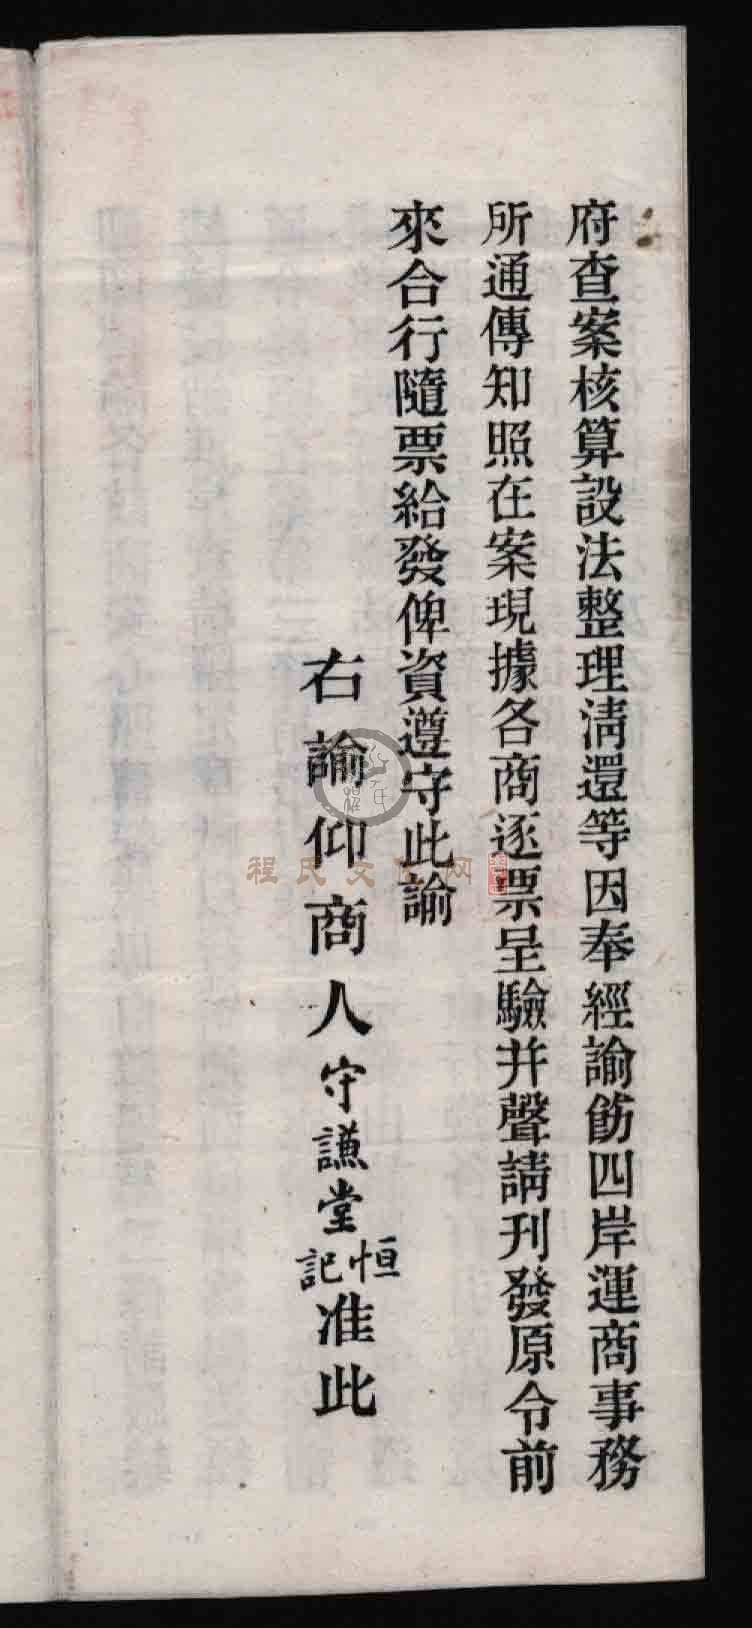 府查案核算設法整理淸還等因奉經諭飭四岸運商事務
所通傳知照在案現據各商逐票呈驗幷聲請刊發原令前
來合行隨票給發俾資遵守此諭
右諭仰商人守謙堂恒記准此
程氏文化网